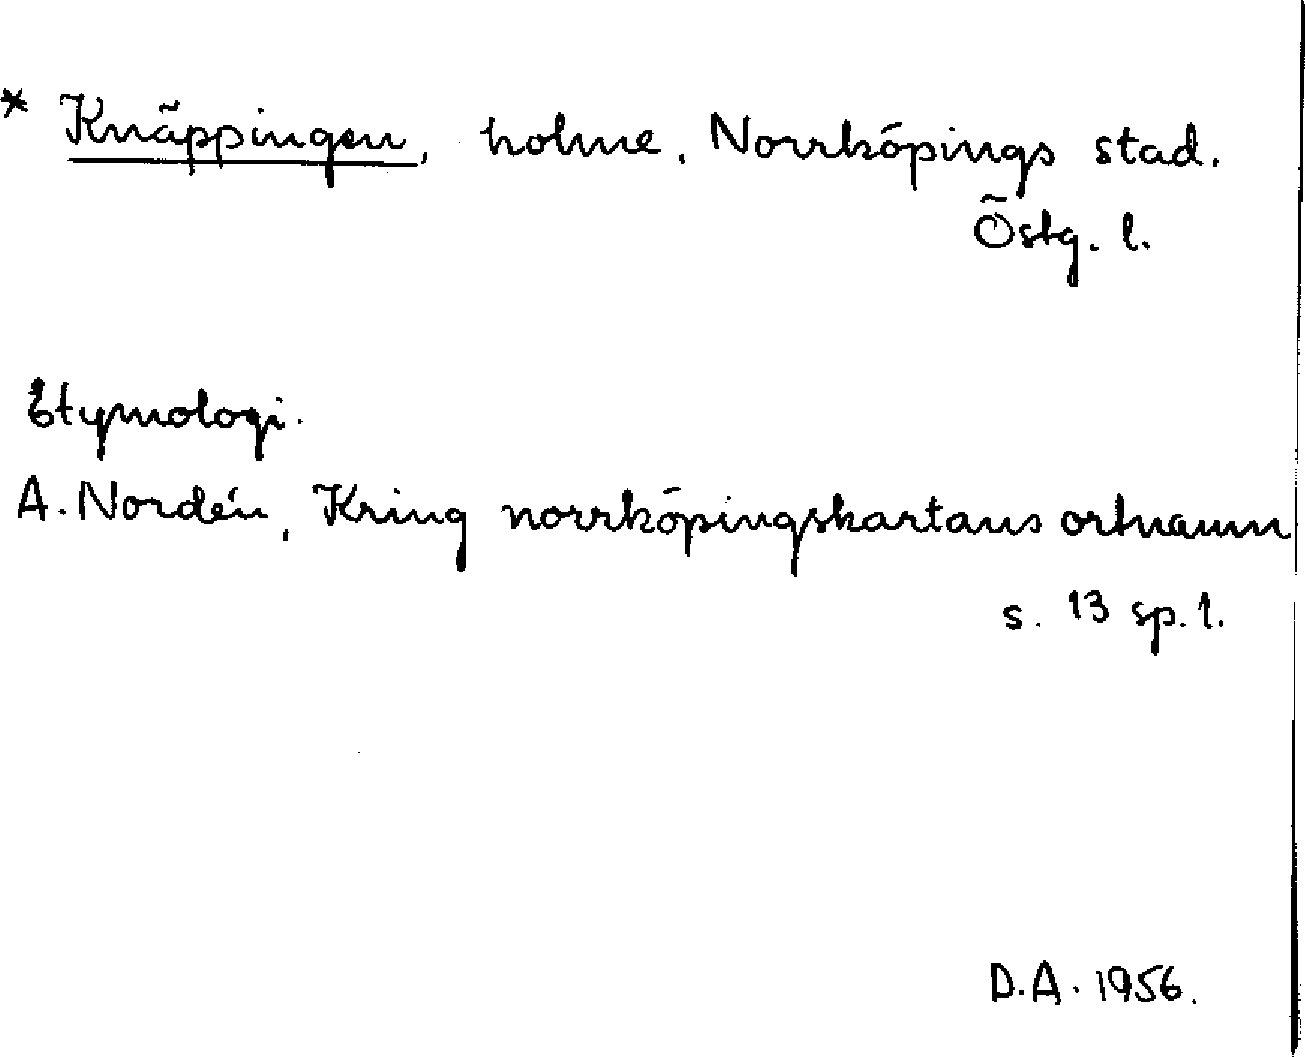 * Knäppingen, holme, Norrköpings stad.
Östg. l.
Etymologi.
A. Nordén, Kring norrköpingskartans ortnamn
s. 13 sp. 1.
D.A. 1956.